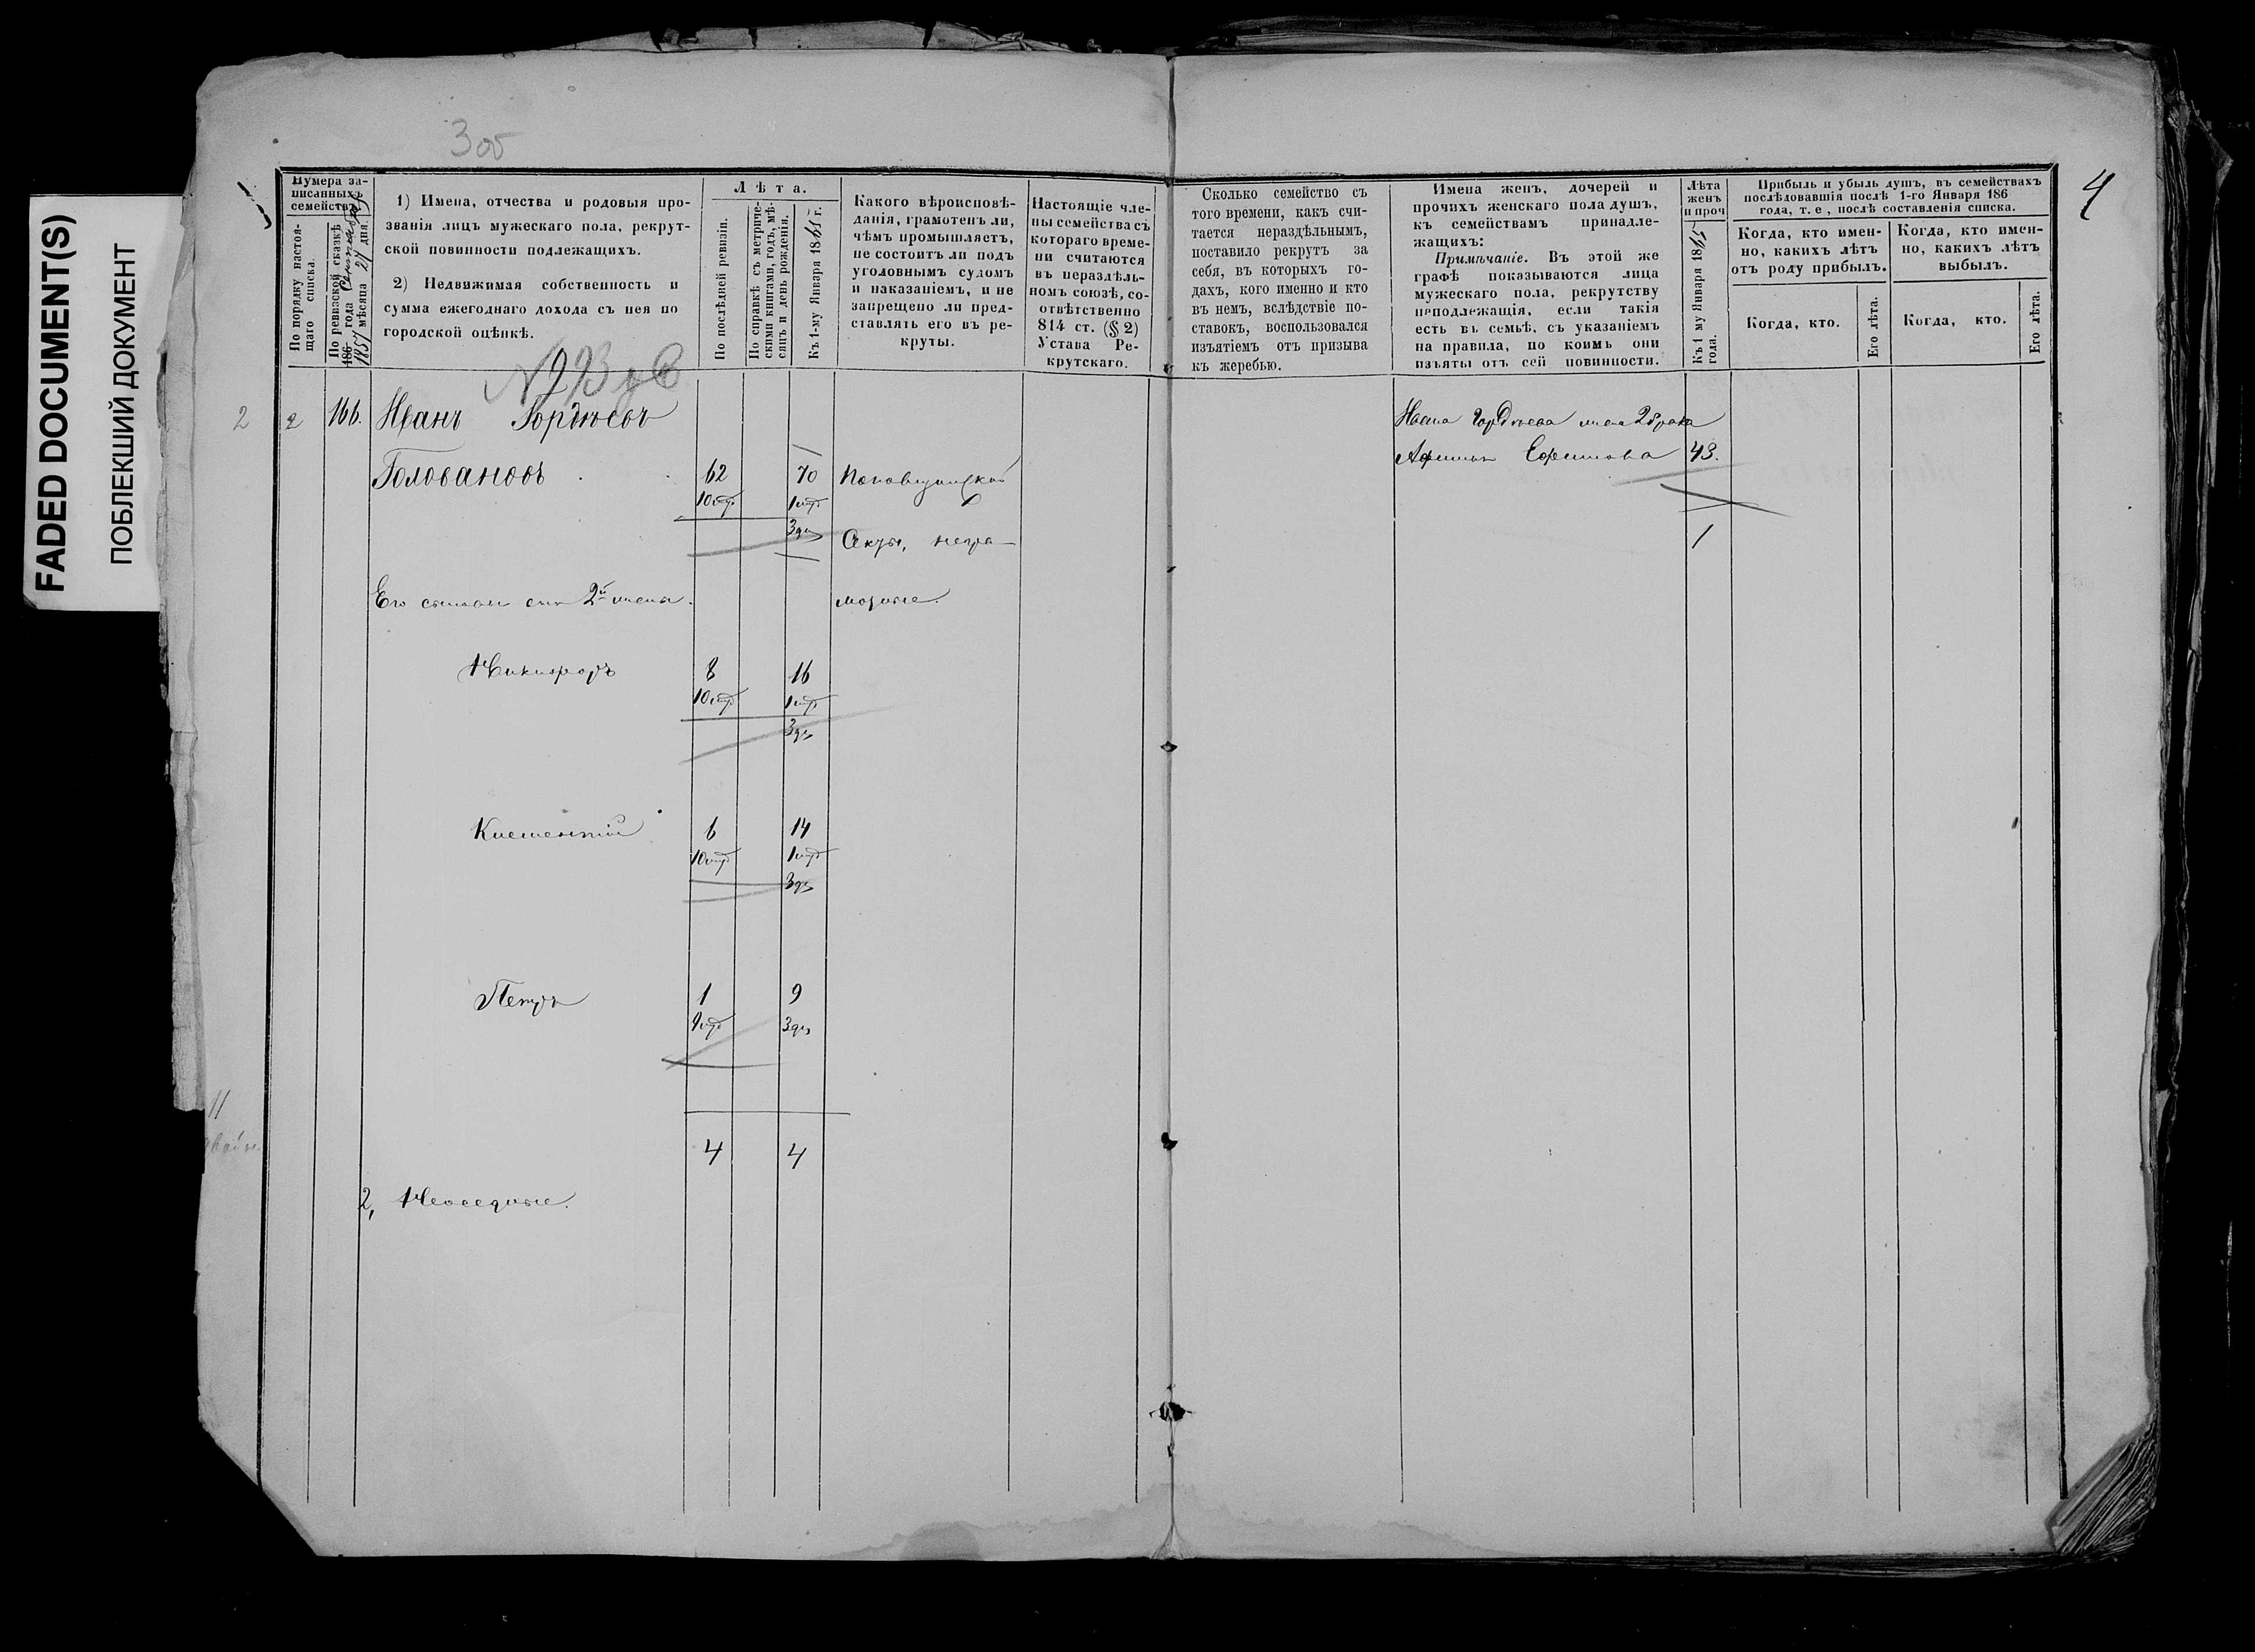 FADED DOCUMENT(S)
ПОБЛЕКШИЙ ДОКУМЕНТ
3 об
4
Нумера за-
писанныхъ
семействъ
По порядку настоя-
щаго списка.
По ревизской сказкѣ
186 года Сентября
1857 мѣсяца 27 дня.
1) Имена, отчества и родовыя про-
званія лицъ мужескаго пола, рекрут-
ской повинности подлежащихъ.
2) Недвижимая собственность и
сумма ежегоднаго дохода съ нея по
городской оцѣнкѣ.
Лѣта.
По послѣдней ревизіи.
По справкѣ съ метриче-
скими книгами, годъ, мѣ-
сяцъ и день рожденія.
Къ 1-му Января 1865 г.
Какого вѣроисповѣ-
данія, грамотенъ ли,
чѣмъ промышляетъ,
не состоитъ ли подъ
уголовнымъ судомъ
и наказаніемъ, и не
запрещено ли пред-
ставлять его въ ре-
круты.
Настоящіе чле-
ны семейства съ
котораго време-
ни считаются
въ нераздѣль-
номъ союзѣ, со-
отвѣтственно
814 ст. (§ 2)
Устава Ре-
крутскаго.
Сколько семейство съ
того времени, какъ счи-
тается нераздѣльнымъ,
поставило рекрутъ за
себя, въ которыхъ го-
дахъ, кого именно и кто
въ немъ, вслѣдствіе по-
ставокъ, воспользовался
изъятіемъ отъ призыва
къ жеребью.
Имена женъ, дочерей и
прочихъ женскаго пола душъ,
къ семействамъ принадле-
жащихъ:
Примѣчаніе. Въ этой же
графѣ показываются лица
мужескаго пола, рекрутству
неподлежащія, если такія
есть въ семьѣ, съ указаніемъ
на правила, по коимъ они
изъяты отъ сей повинности.
Лѣта
женъ
и проч
Къ 1 му Января 1865
года.
Прибыль и убыль душъ, въ семействахъ
послѣдовавшія послѣ 1-го Января 186
года, т. е, послѣ составленія списка.
Когда, кто имен-
но, какихъ лѣтъ
отъ роду прибылъ.
Когда, кто имен-
но, какихъ лѣтъ
выбылъ.
Когда, кто.
Его лѣта.
Когда, кто.
Его лѣта.
2 2 166. Иванъ Гордѣевъ
Головановъ 62 70 Поповщинской
10 1
3 Секты, негра-
Его сыновья отъ 2й жены. мотные.
Никифоръ 8 16
10 1
3
Климентій 6 14
10 1
3
Петръ 1 9
9 3
4 4
2, Неоседлые.
Ивана Гордѣева жена 2 брака
Ефимова 43.
1
11